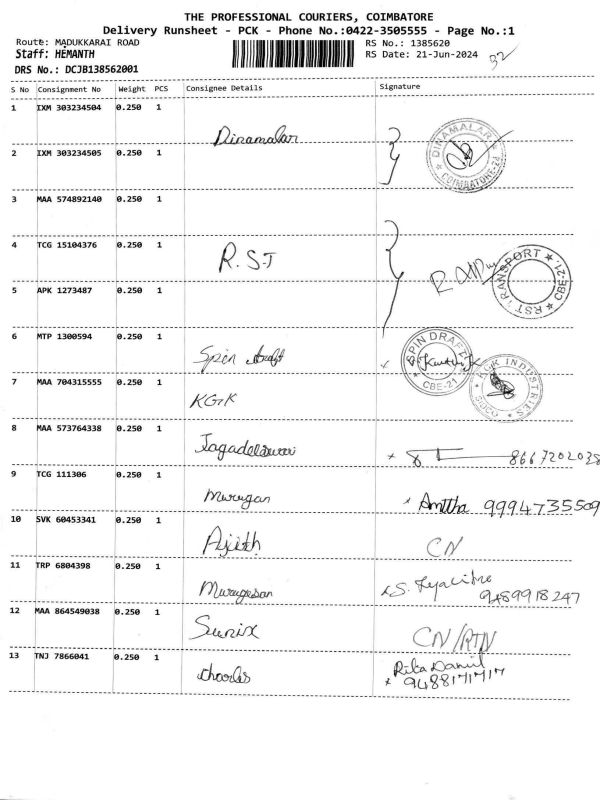 THE PROFESSIONAL COURIERS, COIMBATORE
Delivery Runsheet - PCK - Phone No.:0422-3505555 - Page No.:1
Route: MADUKKARAI ROAD RS No.: 1385620
Staff: HEMANTH RS Date: 21-Jun-2024 32
DRS No.: DCJB138562001
S No Consignment No Weight PCS Consignee Details Signature
1 IXM 303234504 0.250 1 Dinamalar
DINAMALAR COIMBATORE-24
2 IXM 303234505 0.250 1
3 MAA 574892140 0.250 1
4 TCG 15104376 0.250 1 R.S.T
RST TRANSPORT CBE-21.
5 APK 1273487 0.250 1
6 MTP 1300594 0.250 1 Spin draft
SPIN DRAFT CBE-21
7 MAA 704315555 0.250 1 KGK
KGK INDUSTRIES SIDCO
8 MAA 573764338 0.250 1 Jagadeeswari x 8667202038
9 TCG 111306 0.250 1 Murugan x Amitha 9994735509
10 SVK 60453341 0.250 1 Ajith CN
11 TRP 6804398 0.250 1 Murugesan x S. 9489918247
12 MAA 864549038 0.250 1 Sunix CN/RTN
13 TNJ 7866041 0.250 1 charles Rita Daniel
x 9488171717